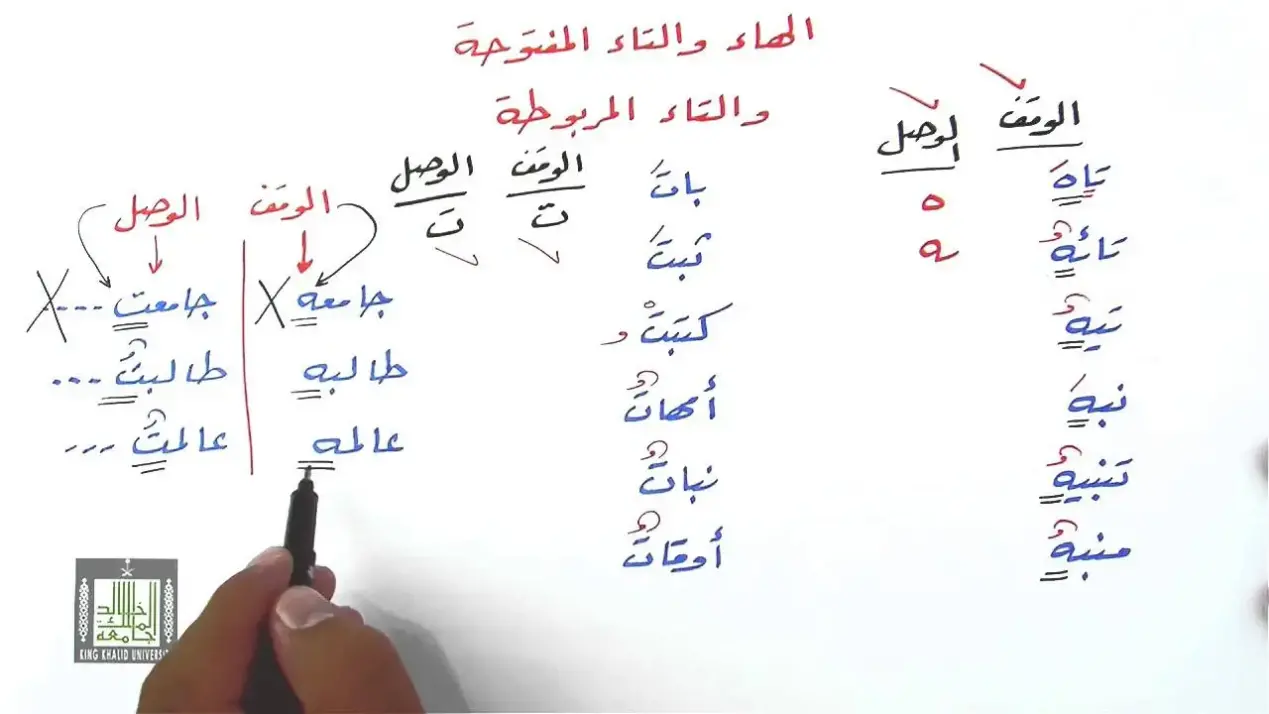 الهاء والتاء المفتوحة
والتاء المربوطة
الوقف
الوصل
تاهَ
ه
تائهٌ
ـه
تيهٌ
نبهَ
تنبيهٌ
منبهٌ
الوقف
الوصل
ت
ت
باتَ
ثبتَ
كتبتْ
أمهاتٌ
نباتٌ
أوقاتٌ
الوقف
الوصل
جامعه
جامعت ---
طالبه
طالبتٌ ...
عالمه
عالمتٌ ---
جامعة
الملك
خالد
KING KHALID UNIVERSI